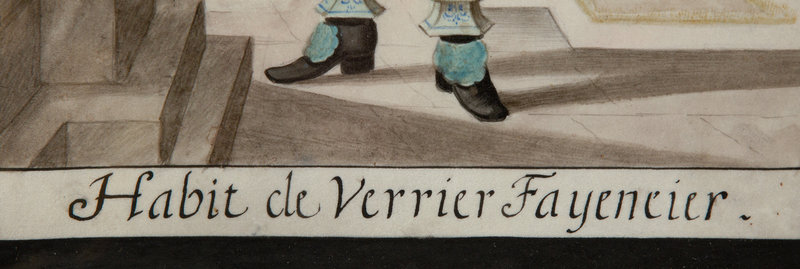 Habit de Verrier Fayencier.